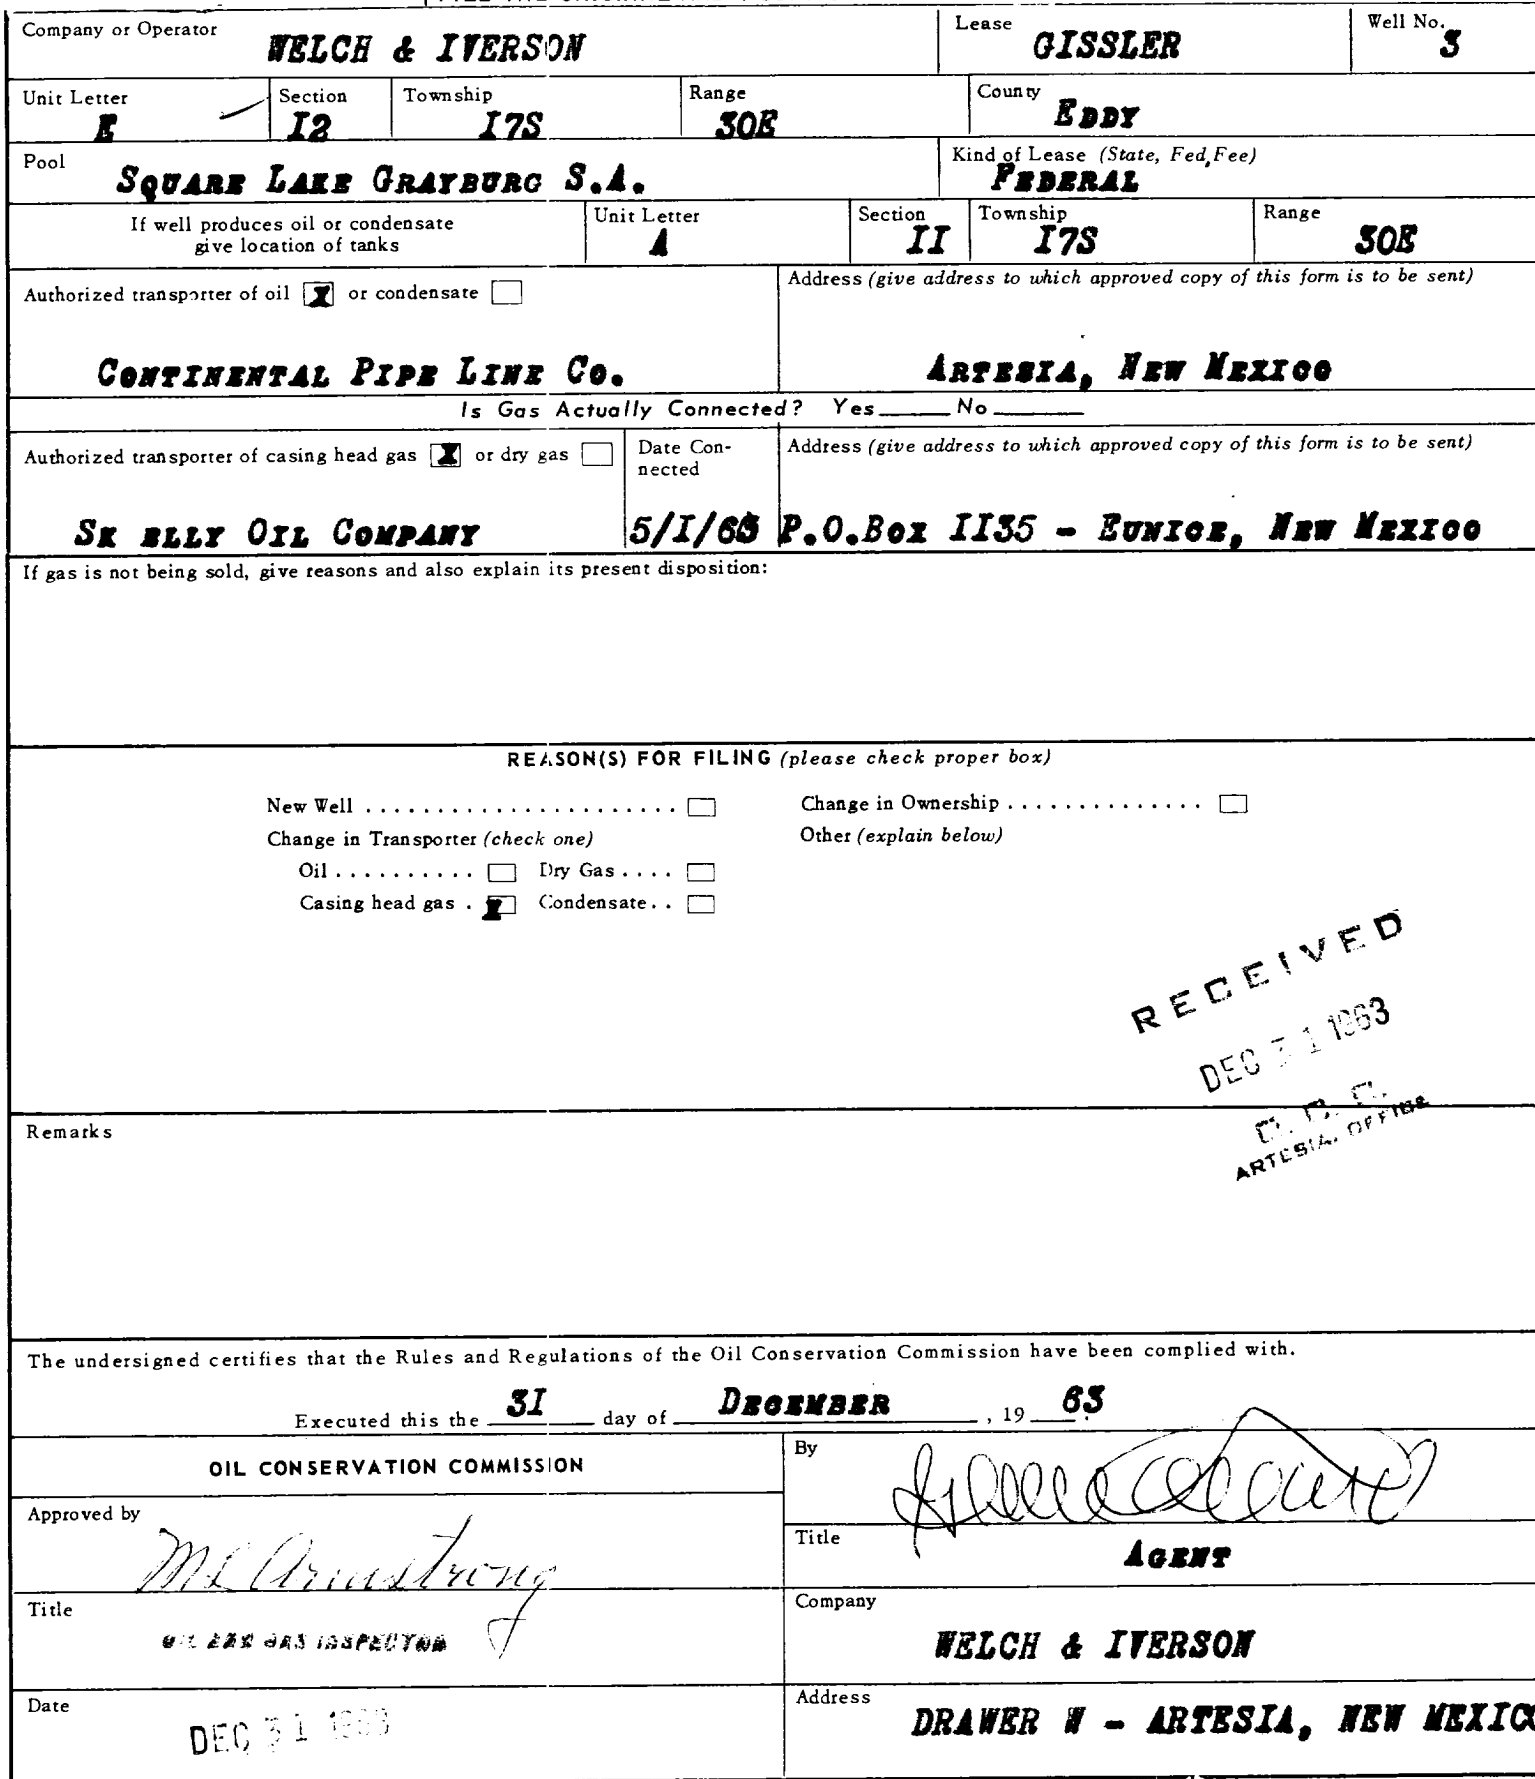 Company or Operator WELCH & IVERSON Lease GISSLER Well No. 3
Unit Letter E Section I2 Township I7S Range 30E County EDDY
Pool SQUARE LAKE GRAYBURG S.A. Kind of Lease (State, Fed, Fee) FEDERAL
If well produces oil or condensate give location of tanks Unit Letter A Section II Township I7S Range 30E
Authorized transporter of oil X or condensate Address (give address to which approved copy of this form is to be sent)
CONTINENTAL PIPE LINE CO. ARTESIA, NEW MEXICO
Is Gas Actually Connected? Yes No
Authorized transporter of casing head gas X or dry gas Date Con-nected Address (give address to which approved copy of this form is to be sent)
SK ELLY OIL COMPANY 5/I/63 P.O.BOX II35 - EUNICE, NEW MEXICO
If gas is not being sold, give reasons and also explain its present disposition:
REASON(S) FOR FILING (please check proper box)
New Well . . . . . . . . . . . . . . . . . . . . . . Change in Ownership . . . . . . . . . . . . . .
Change in Transporter (check one) Other (explain below)
Oil . . . . . . . . . . Dry Gas . . . .
Casing head gas . X Condensate . .
RECEIVED
DEC 31 1963
O. C. C.
ARTESIA, OFFICE
Remarks
The undersigned certifies that the Rules and Regulations of the Oil Conservation Commission have been complied with.
Executed this the 3I day of DECEMBER , 19 63.
OIL CONSERVATION COMMISSION By
Approved by ML Armstrong Title AGENT
Title OIL AND GAS INSPECTOR Company WELCH & IVERSON
Date DEC 31 1963 Address DRAWER W - ARTESIA, NEW MEXICO